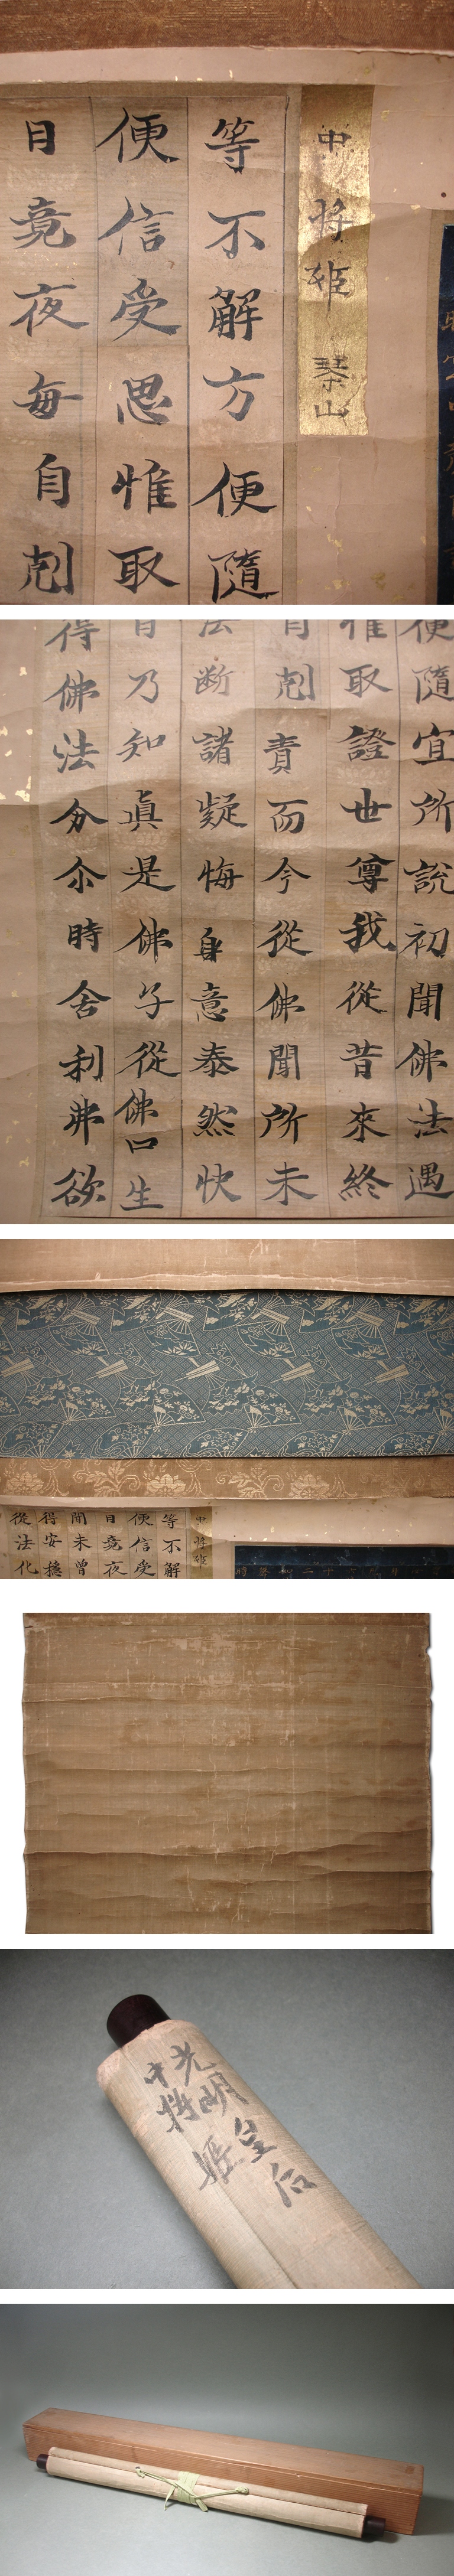 中将姫 琴山
等不解方便隨
便信受思惟取
日竟夜毎自剋
便隨宜所說初聞佛法遇
惟取證世尊我從昔來終
自剋責而今從佛聞所未
法断諸疑悔身意泰然快
日乃知眞是佛子從佛口生
得佛法分尒時舍利弗欲
中将姫
等不解
便信受
日竟夜
聞未曾
得安穏
從法化
光明皇后
中将姫